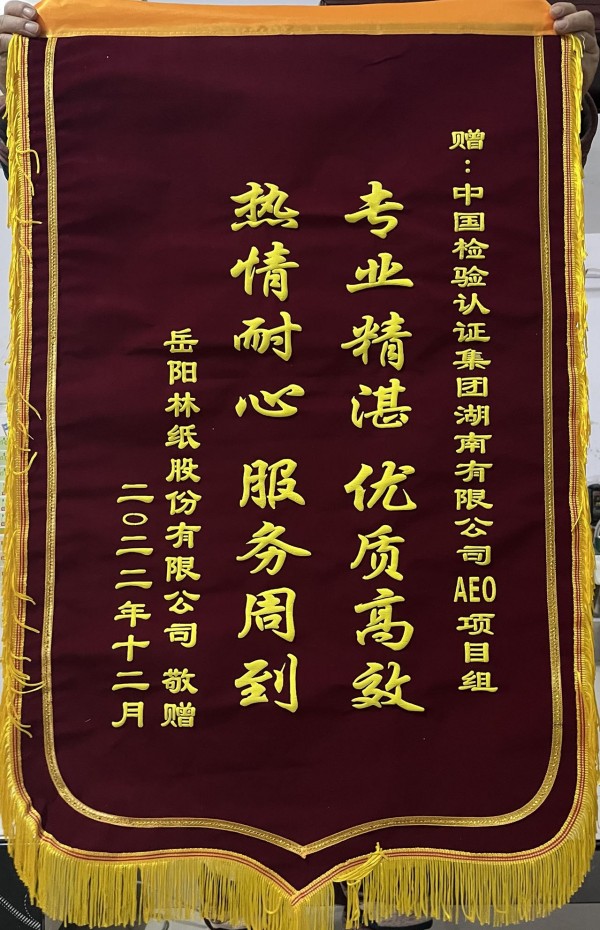 赠：中国检验认证集团湖南有限公司AEO项目组
专业精湛 优质高效
热情耐心 服务周到
岳阳林纸股份有限公司 敬赠
二〇二二年十二月